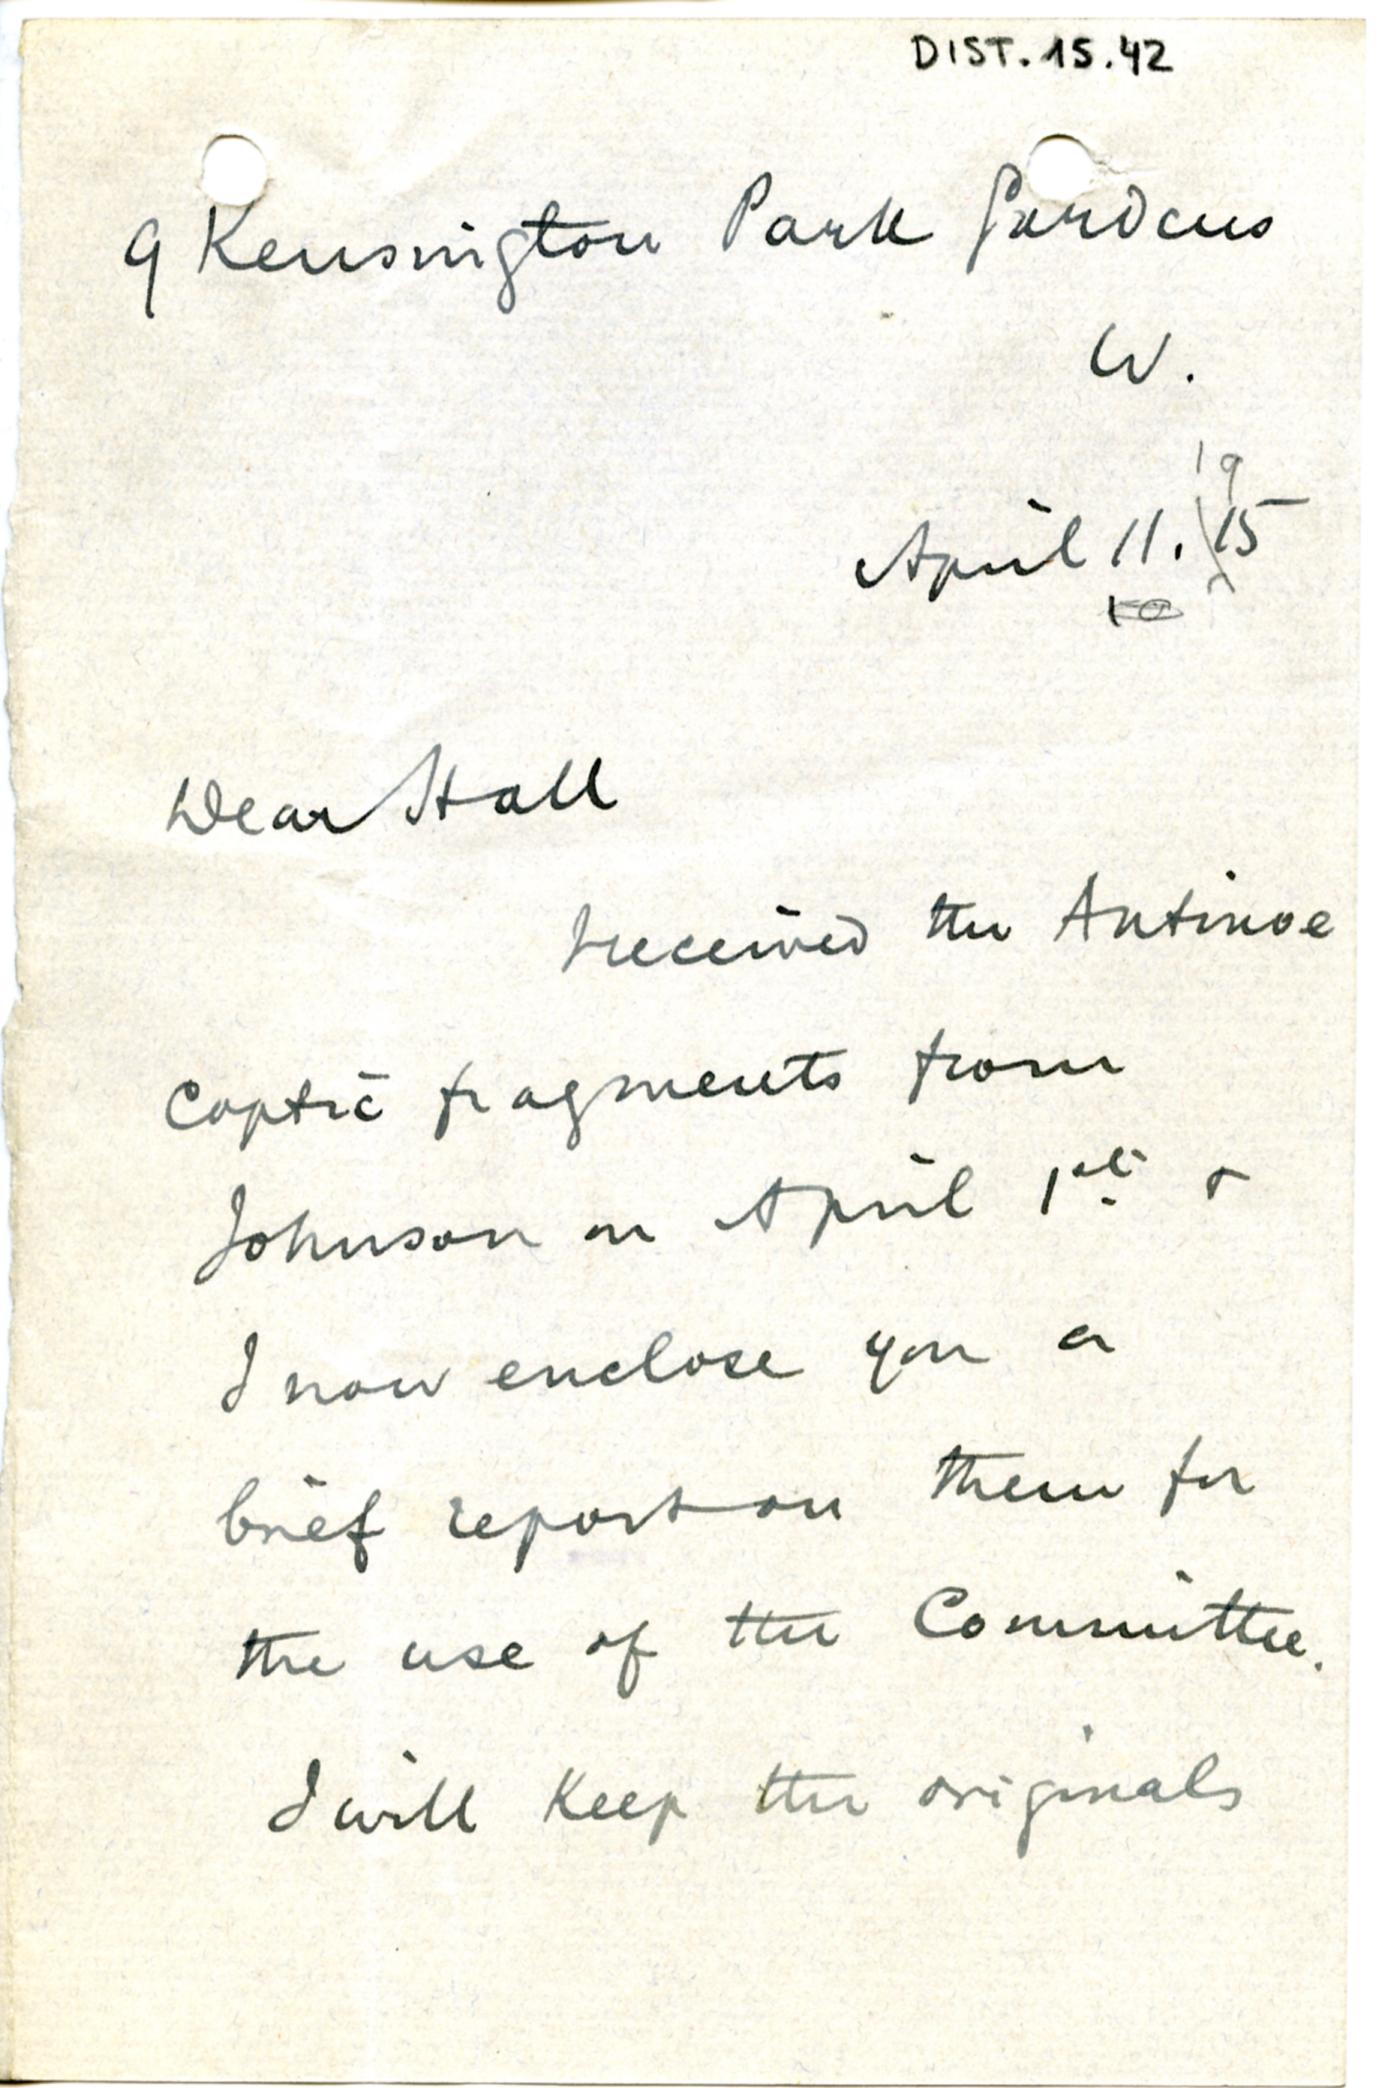 DIST.15.42
9 Kensington Park Gardens
W.
19
April 11. 15
Dear Hall
I received the Antinoe
Coptic fragments from
Johnson on April 1st &
I now enclose you a
brief report on them for
the use of the Committee.
I will keep the originals